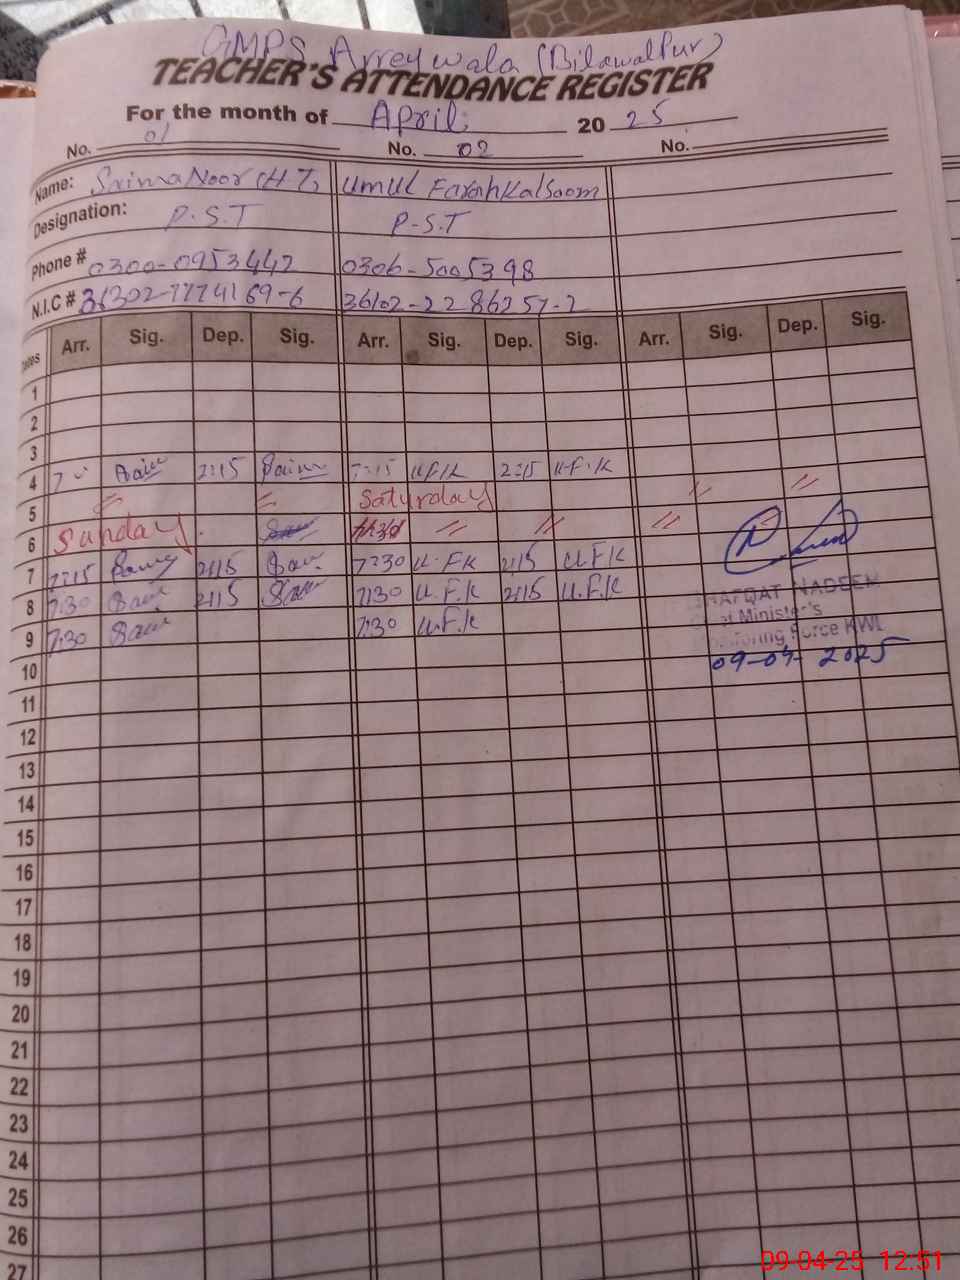 GMPS Arreywala (Bilawalpur)
TEACHER'S ATTENDANCE REGISTER
For the month of April 20 25
No. 01 No. 02 No.
Name: Saima Noor (H.T) Umul Farah Kalsoom
Designation: P.S.T P-S.T
Phone # 0300-0953442 0306-5005398
N.I.C # 36302-7774169-6 36102-2286257-2
Dates Arr. Sig. Dep. Sig. Arr. Sig. Dep. Sig. Arr. Sig. Dep. Sig.
1
2
3
4 Saim 2:15 Saima 7:15 U.F.K 2:15 U.F.K
5 〃 〃 Saturday 〃 〃
6 Sunday 〃 〃 〃
7 7:15 2:15 Sai 7:30 U.FK 2:15 U.F.K
8 7:30 Sai 2:15 Sai 7:30 U.F.K 2:15 U.F.K
9 7:30 Sai 7:30 U.F.K
SHAFQAT NADEEM
Chief Minister's
Monitoring Force KWL
09-04-2025
10
11
12
13
14
15
16
17
18
19
20
21
22
23
24
25
26
27
09-04-25 12:51